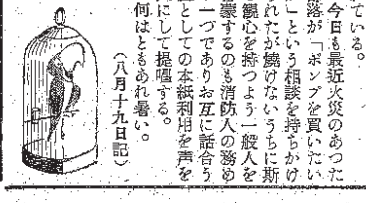 ている。
今日も最近火災のあつた
落が「ポンプを買いたい
」という相談を持ちかけ
れたが燒けないうちに斯
觀心を持つよう一般人を
蒙するのも消防人の務め
一つでありお互に話合う
としての本紙利用を声を
にして提唱する。
何はともあれ暑い。
（八月十九日記）